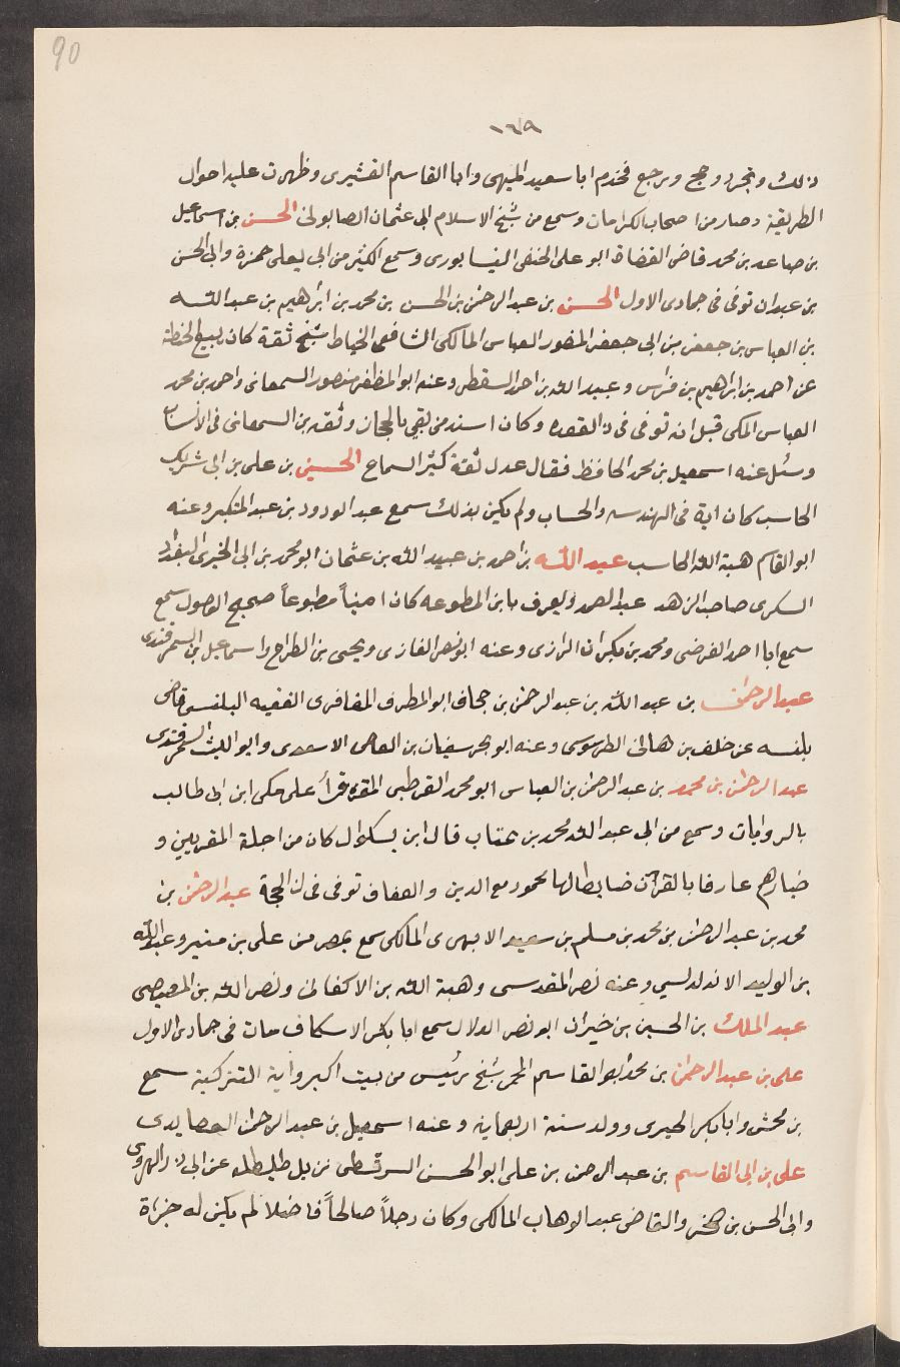 90
١٦٩
ذلك وتجرد وحج ورجع فخدم ابا سعيد الميهى وابا القاسم القشيرى وظهرت عليه احوال
الطريقة وصار من اصحاب الكرامات وسمع من شيخ الاسلام ابى عثمان الصابونى الحسن بن اسماعيل
بن صاعد بن محمد قاضى القضاة ابو على الحنفى النيسابورى وسمع الكثير من ابى يعلى حمزة وابى الحسن
بن عبدان توفى فى جمادى الاول الحسن بن عبد الرحمن بن الحسن بن محمد بن ابرهيم بن عبد الله
بن العباس بن جعفر بن ابى جعفر المنصور العباسى المالكى الشافعى الخياط شيخ ثقة كان يبيع الحنطة
عن احمد بن ابرهيم بن فراس وعبيد الله بن احمد السقطى وعنه ابو المظفر منصور السمعانى واحمد بن محمد
العباسى المكى قيل انه توفى فى ذى القعده وكان اسند من بقي بالحجاز وثقه بن السمعانى فى الانساب
وسئل عنه اسمعيل بن محمد الحافظ فقال عدل ثقة كثير السماع الحسين بن على بن ابى شريك
الحاسب كان اية فى الهندسه والحساب ولم يكن بذلك سمع عبد الودود بن عبد المتكبر وعنه
ابو القاسم هبة الله الحاسب عبد الله بن احمد بن عبيد الله بن عثمان ابو محمد بن ابى الخير البغدادى
السكرى صاحب الزهد عبد الصمد ويعرف بابن المطوعه كان امينا مطبوعاً صحيح الاصول سمع
سمع ابا احمد الفرضى ومحمد بن بكران الرازى وعنه ابو نصر الغازى ويحيى بن الطراح واسماعيل بن السمرقندى
عبد الرحمن بن عبد الله بن عبد الرحمن بن جحاف ابو المطرف المغافرى الفقيه البلنسى قاضى
بلنسه عن خلف بن هانى الطرسوسى وعنه ابو بحر سفيان بن العاص الاسدى وابو الليث السمرقندى
عبد الرحمن بن محمد بن عبد الرحمن بن العباس ابو محمد القرطبى المقرى قرأ على مكى ابن ابى طالب
بالروايات وسمع من ابى عبد الله محمد بن عتاب قال ابن بسكوال كان من اجلة المقريين و
خيارهم عارفا بالقرآن ضابطا لها مع الدين والعفاف توفى فى ذى الحجة عبد الرحمن بن
محمد بن عبد الرحمن بن محمد بن مسلم بن سعيد الابهرى المالكى سمع بمصر من على بن منير وعبد الله
بن الوليد الاندلسي وعنه نصر المقدسى وهبة الله بن الاكفانى ونصر الله بن المصيصى
عبد الملك بن الحسين بن خيران ابو نصر الدلال سمع ابا بكر الاسكاف مات فى جمادى الاول
على بن عبد الرحمن بن محمد ابو القاسم شيخ رئيس من بيت اكبر سمع
بن محمش وابا بكر الحيرى وولد سنة اربعمايه وعنه اسمعيل بن عبد الرحمن العصايدى
على بن ابى القاسم بن عبد الرحمن بن على ابو الحسن السرقسطى نزيل طليطله عن ابى ذر الهروى
وابى الحسن بن صخر والقاضى عبد الوهاب المالكى وكان رجلاً صالحاً فاضلا لم يكن له خبرة